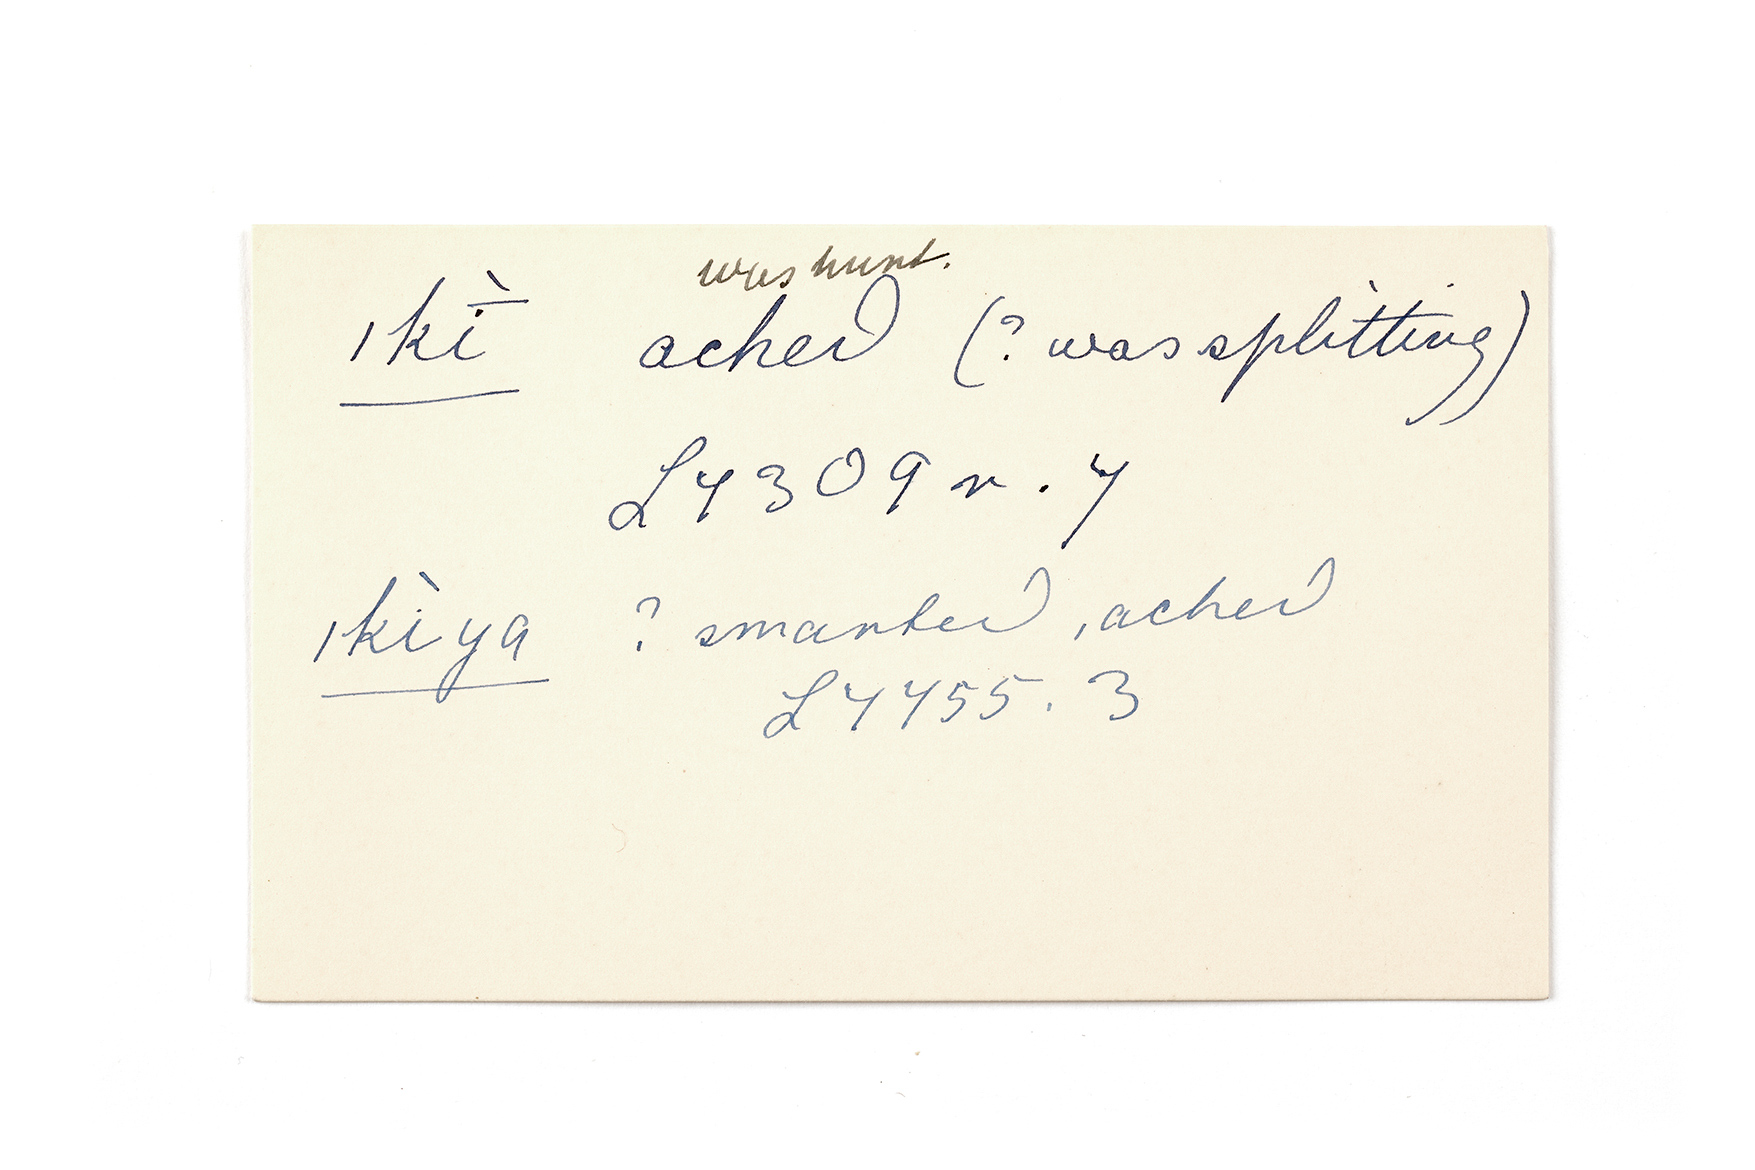 was hurt.
ǀkī̀ ached (? was splitting)
L4309 r. 4
ǀkìya ? smarted, ached
L4455. 3